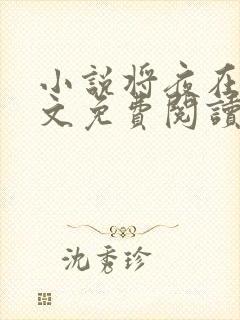 小說將夜在
文免費閱讀
沈秀珍